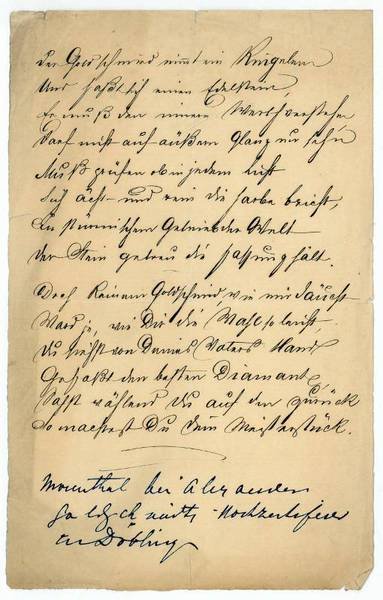 Der Goldschmied nimmt ein Ringelein
Und faßt sich einen Edelstein,
Er muß den innern Werth verstehn
Darf nicht auf äußern Glanz nur sehn
Muß prüfen ob in jedem Licht
Sich ächt und rein die Farbe bricht,
Im stürmischem Getriebe der Welt
Der Stein getreu die Fassung hält.
Doch Keinem Goldschmied wie mir däucht
Ward je, wie Dir die Wahl so leicht
Du siehst von Deines Vaters Hand
Gefaßt den besten Diamant
wählend Du auf den zurück
So machtest Du Dein Meisterstück.
Mosenthal bei Alexander
Goldschmidts Hochzeitsfeier
in Döbling